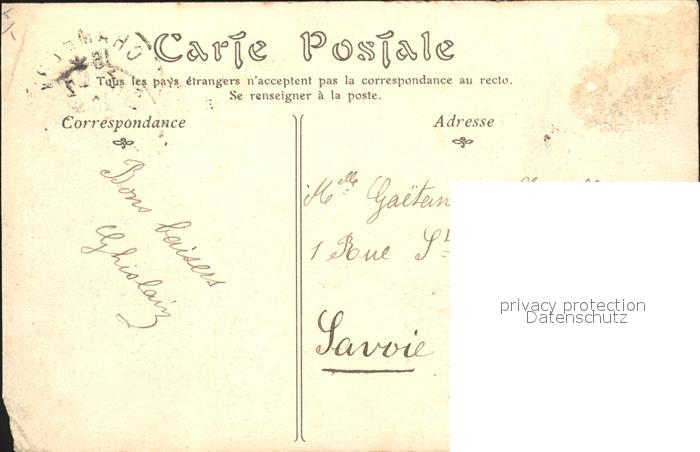 Carte Postale
Tous les pays étrangers n'acceptent pas la correspondance au recto.
Se renseigner à la poste.
Correspondance
Adresse
Bons baisers
Ghislain
Melle Gaëtan
1 Rue St
Savoie
privacy protection
Datenschutz